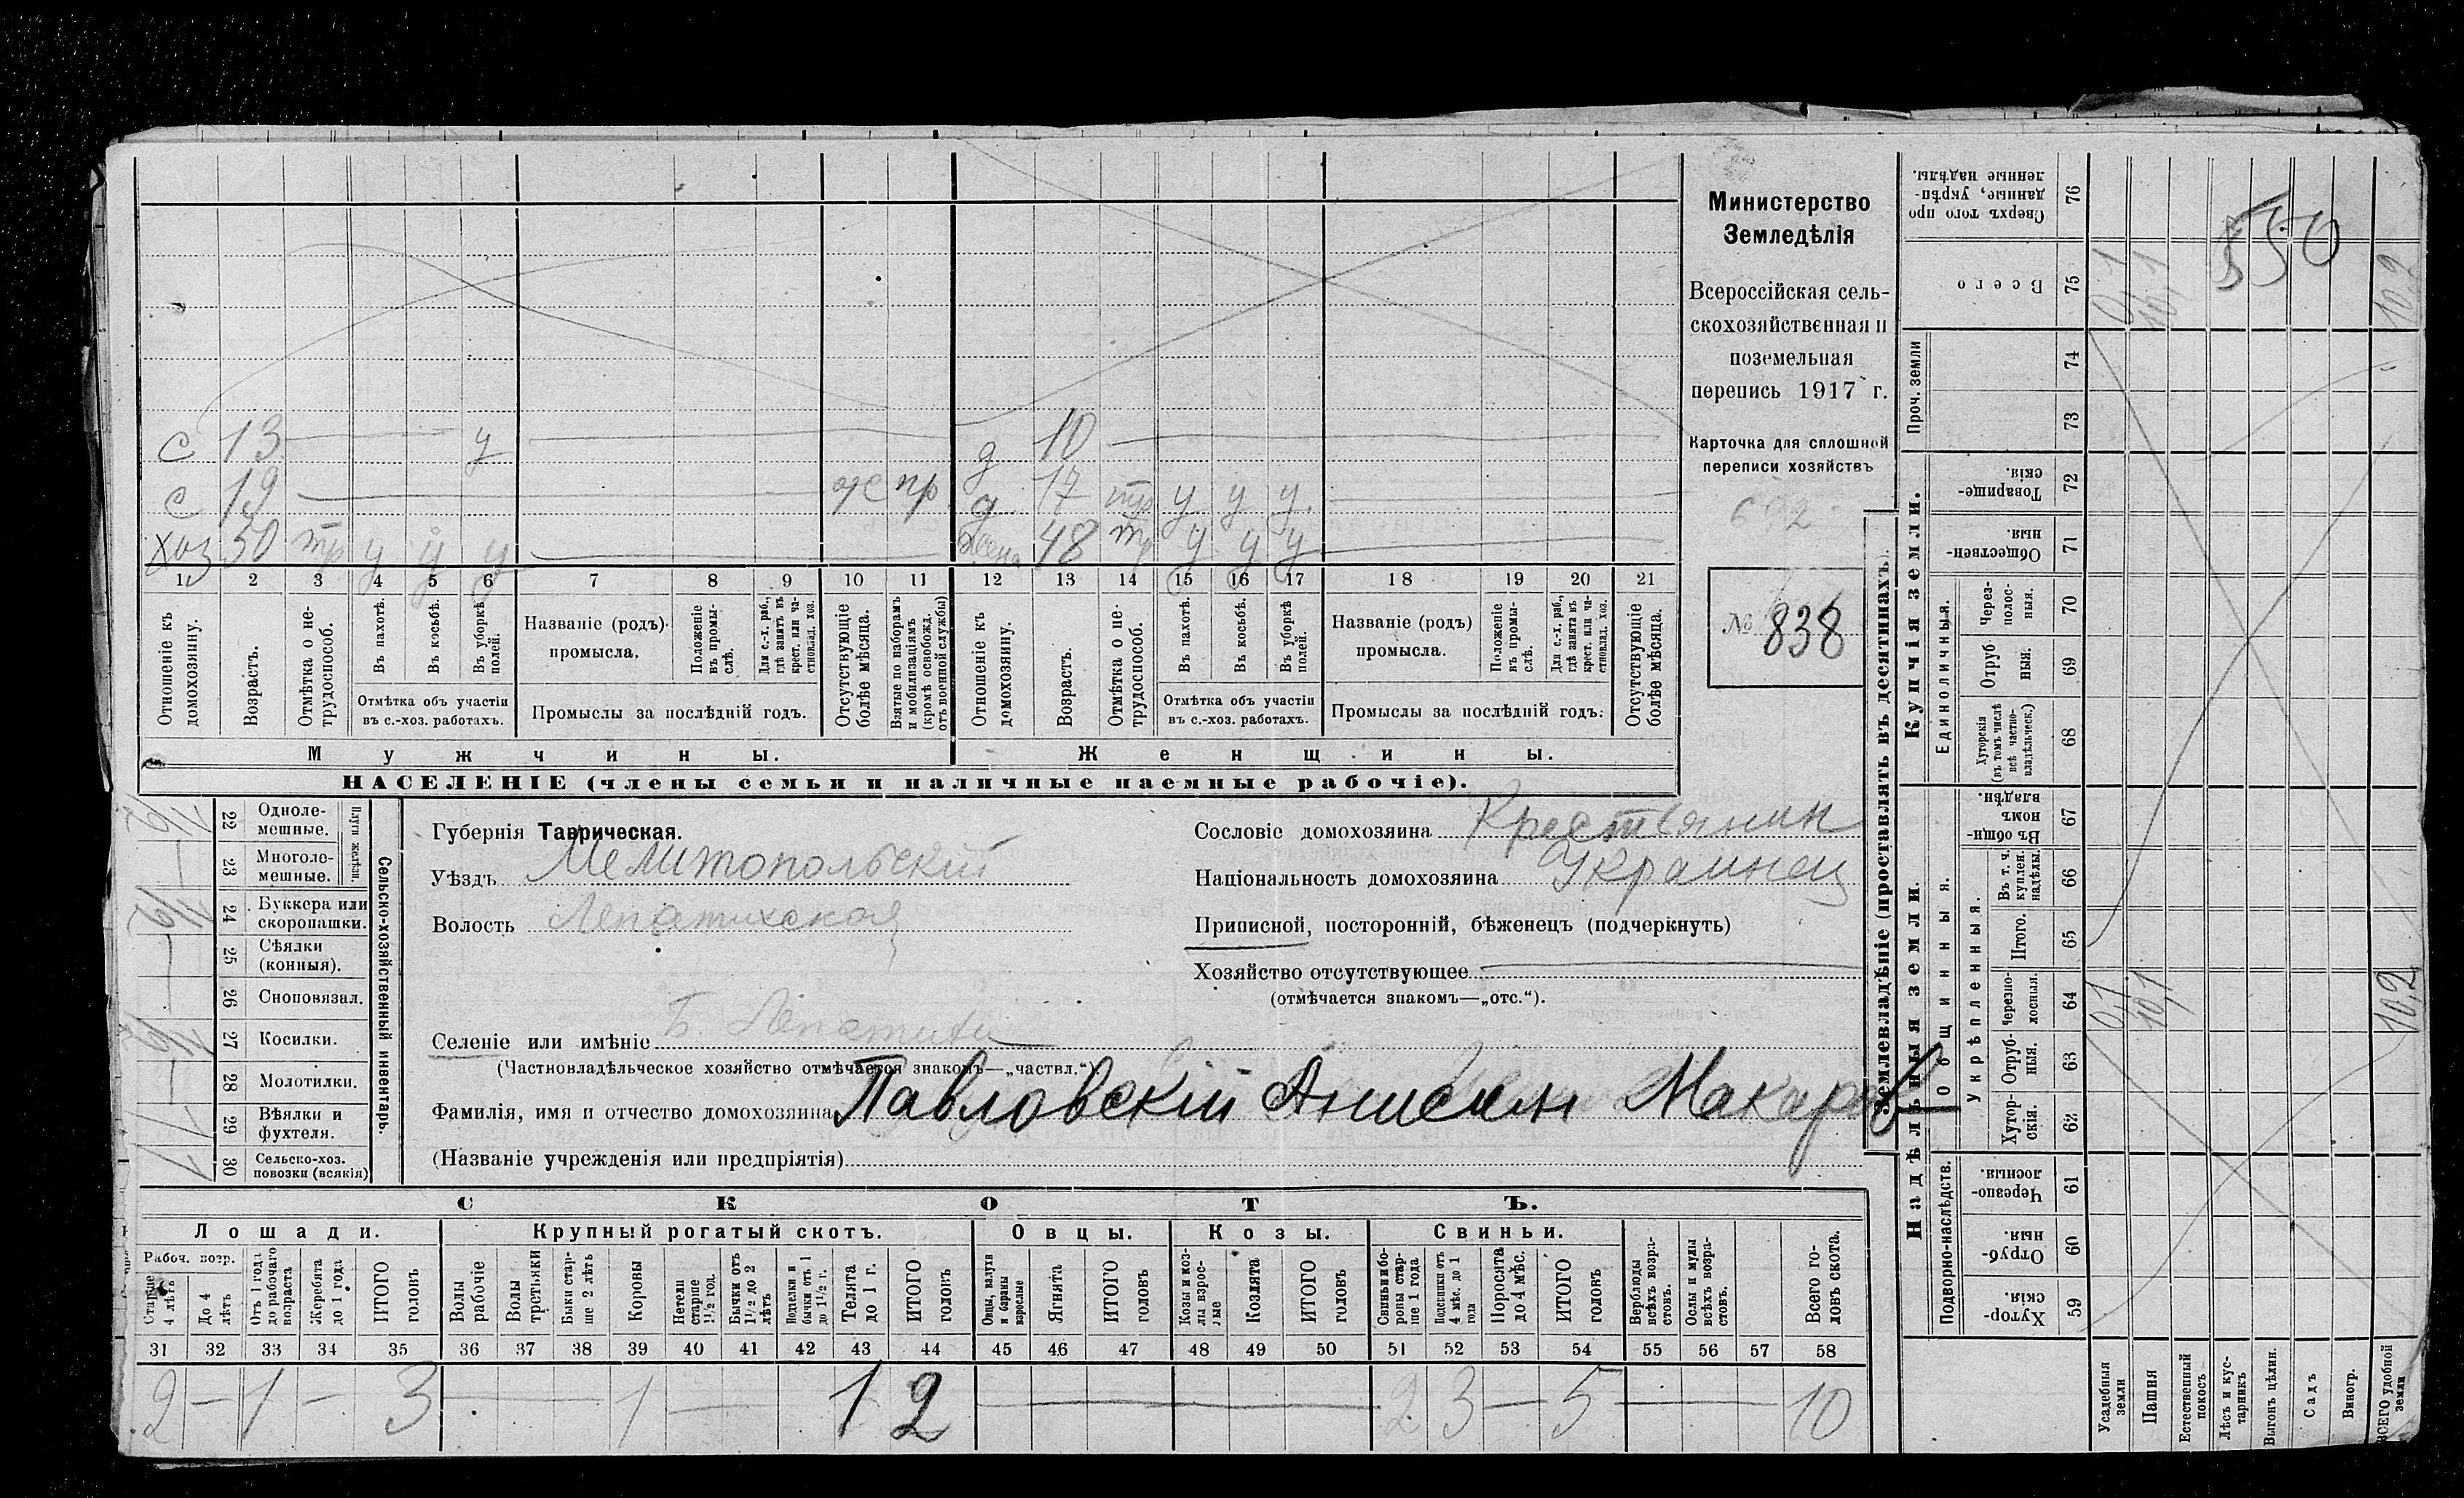 Министерство
Земледѣлія
Всероссійская сель-
скохозяйственная и
поземельная
перепись 1917 г.
Карточка для сплошной
переписи хозяйствъ
№ 838
с 13 у
с 19 отс пр
хоз 50 тр у у у
д 10
д 17 тр у у у
жена 48 тр у у у
1 2 3 4 5 6 7 8 9 10 11 12 13 14 15 16 17 18 19 20 21
Отношеніе къ домохозяину.
Возрастъ.
Отмѣтка о не-трудоспособ.
Въ пахотѣ.
Въ косьбѣ.
Въ уборкѣ полей.
Отмѣтка объ участіи
въ с.-хоз. работахъ.
Названіе (родъ)
промысла.
Положеніе въ промы-слѣ.
Для с.-х. раб., гдѣ занятъ въ крест. или ча-стновлад. хоз.
Промыслы за послѣдній годъ.
Отсутствующіе болѣе мѣсяца.
Взятые по наборамъ и мобилизаціямъ (кромѣ освобожд. отъ военной службы)
Отношеніе къ домохозяину.
Возрастъ.
Отмѣтка о не-трудоспособ.
Въ пахотѣ.
Въ косьбѣ.
Въ уборкѣ полей.
Отмѣтка объ участіи
въ с.-хоз. работахъ.
Названіе (родъ)
промысла.
Положеніе въ промы-слѣ.
Для с.-х. раб., гдѣ занята въ крест. или ча-стновлад. хоз.
Промыслы за послѣдній годъ.
Отсутствующіе болѣе мѣсяца.
Мужчины. Женщины.
НАСЕЛЕНІЕ (члены семьи и наличные наемные рабочіе).
Сельско-хозяйственный инвентарь.
Плуги желѣзн.
22 Одноле-мешные.
23 Многоле-мешные.
24 Буккера или скоропашки.
25 Сѣялки (конныя).
26 Сноповязал.
27 Косилки.
28 Молотилки.
29 Вѣялки и фухтеля. 1
30 Сельско-хоз. повозки (всякія) 1
Губернія Таврическая.
Уѣздъ Мелитопольскій
Волость Лепатихская
Селеніе или имѣніе Б. Лепатиха
(Частновладѣльческое хозяйство отмѣчается знакомъ—„частвл.“)
Фамилія, имя и отчество домохозяина Павловскій Анисим Макаров
(Названіе учрежденія или предпріятія)
Сословіе домохозяина Крестьянин
Національность домохозяина Украинец
Приписной, посторонній, бѣженецъ (подчеркнуть)
Хозяйство отсутствующее
(отмѣчается знакомъ—„отс.“).
СКОТЪ.
Лошади. Крупный рогатый скотъ. Овцы. Козы. Свиньи.
Рабоч. возр.
Старше 4 лѣтъ
До 4 лѣтъ
Отъ 1 года до рабочаго возраста
Жеребята до 1 года
ИТОГО головъ
Волы рабочіе
Волы третьяки
Быки стар-ше 2 лѣтъ
Коровы
Нетели старше 1½ год.
Бычки отъ 1½ до 2 лѣтъ
Подтелки и бычки отъ 1 до 1½ г.
Телята до 1 г.
ИТОГО головъ
Овцы, валухи и бараны взрослые
Ягнята
ИТОГО головъ
Козы и коз-лы взрос-лые
Козлята
ИТОГО головъ
Свиньи и бо-ровы стар-ше 1 года
Подсвинки отъ 4 мѣс. до 1 года
Поросята до 4 мѣс.
ИТОГО головъ
Верблюды всѣхъ возра-стовъ.
Ослы и мулы всѣхъ возра-стовъ.
Всего го-ловъ скота.
31 32 33 34 35 36 37 38 39 40 41 42 43 44 45 46 47 48 49 50 51 52 53 54 55 56 57 58
2 — 1 — 3 — 1 — 1 2 — 2 3 — 5 — 10
Землевладѣніе (проставлять въ десятинахъ).
Надѣльныя земли.
Купчія земли.
Проч. земли
Подворно-наслѣдств.
Общинныя.
Укрѣпленныя.
Единоличныя.
Хутор-скія. 59
Отруб-ныя. 60
Черезпо-лосныя. 61
Хутор-скія. 62
Отруб-ныя. 63
Черезпо-лосныя. 64
Итого. 65
Въ т. ч. куплен. надѣлы. 66
Въ общи-номъ владѣн. 67
Хуторскія (въ томъ числѣ всѣ частно-владѣльческ.) 68
Отруб-ныя. 69
Через-полос-ныя. 70
Обществен-ныя. 71
Товарище-скія. 72
73
74
Всего 75
Сверхъ того про-данные, укрѣп-ленные надѣлы. 76
Усадебныя земли 0,1 0,1
Пашня 10,1 10,1
Естественный покосъ
Лѣсъ и кус-тарникъ
Выгонъ цѣлин.
Садъ
Виногр.
ВСЕГО удобной земли 10,2 10,2
550